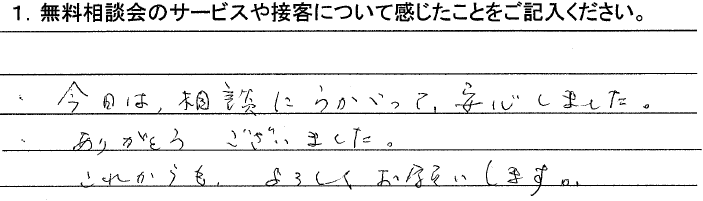 1. 無料相談会のサービスや接客について感じたことをご記入ください。
・ 今日は、相談にうかがって、安心しました。
・ ありがとうございました。
これからも、よろしくお願いします。